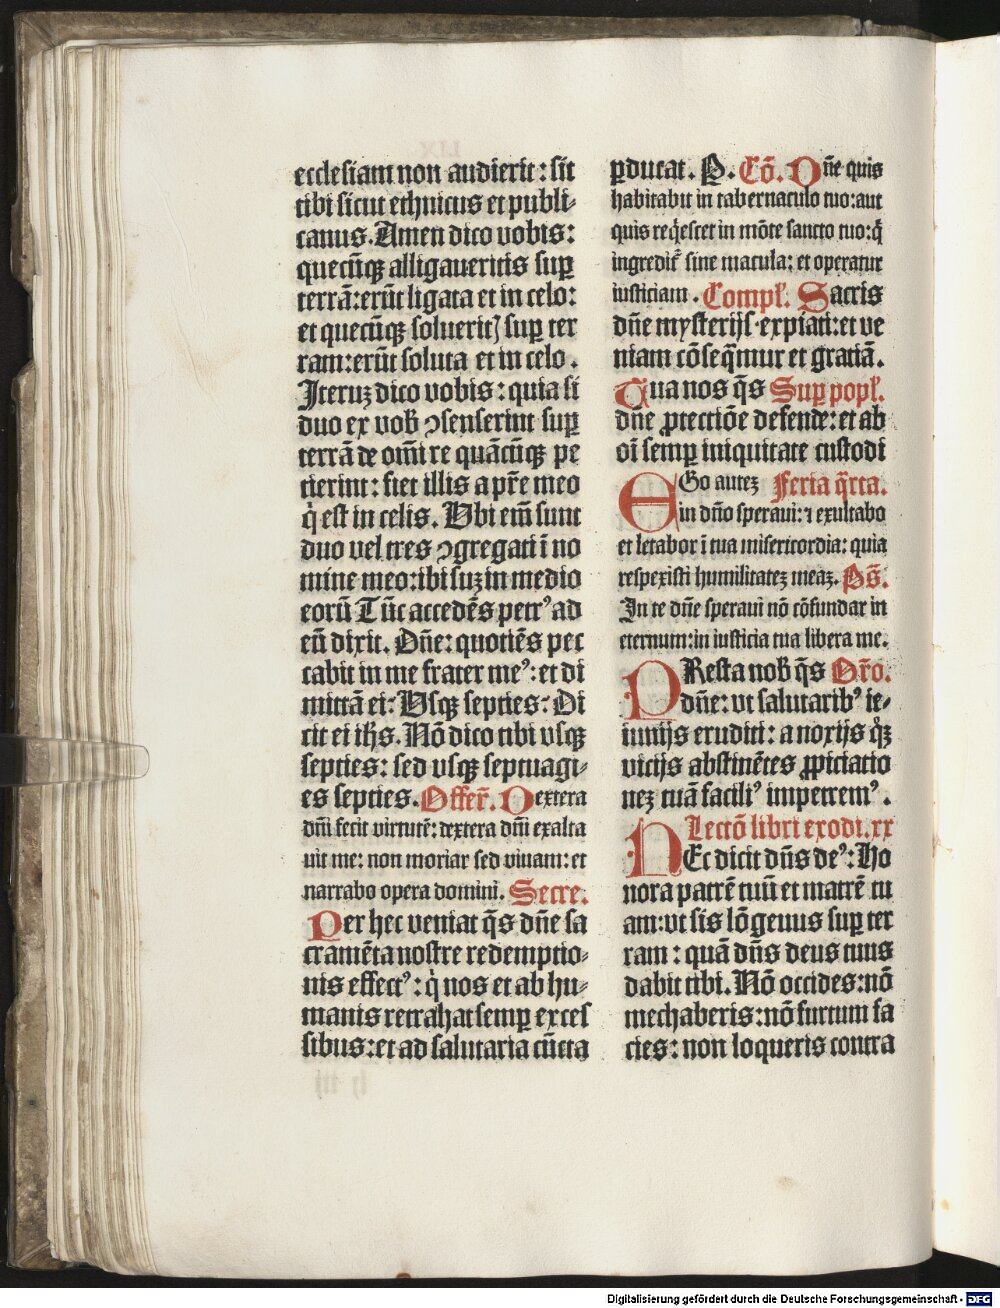 ecclesiam non audierit: sit
tibi sicut ethnicus et publi-
canus. Amen dico vobis:
quecūqꝫ alligaueritis sup̱
terrā: erūt ligata et in celo:
et quecūqꝫ soluerit] sup̱ ter
ram: erūt soluta et in celo.
Iteruꝫ dico vobis: quia si
duo ex vob̄ ꝯsenserint sup̱
terrā de om̄i re quācūqꝫ pe
tierint: fiet illis a pr̄e meo
q̇ est in celis. Vbi em̄ sunt
duo vel tres ꝯgregati ī no
mine meo: ibi suꝫ in medio
eorū Tūc accedēs petr᾿ ad
eū dixit. Dn̄e: quotiēs pec
cabit in me frater me᾿: et di
mittā ei: Vsqꝫ septies: Di
cit ei ih̄s. Nō dico tibi vsqꝫ
septies: sed vsqꝫ septuagi-
es septies. Offer̄. Dextera
dn̄i fecit virtutē: dextera dn̄i exalta
uit me: non moriar sed viuam: et
narrabo opera domini. Secre.
Per hec veniat q̄s dn̄e sa
cramēta nostre redemptio-
nis effect᾿: q̇ nos et ab hu-
manis retrahat semp̱ exces
sibus: et ad salutaria cūcta
p̱ducat. P. Cō. Dn̄e quis
habitabit in tabernaculo tuo: aut
quis reqͥescet in mōte sancto tuo: q̄
ingredit᷑ sine macula: et operatur
iusticiam. Compl̄. Sacris
dn̄e mysterijs expiati: et ve
niam cōseq̄mur et gratiā.
Tua nos q̄s Sup̱ popl̄.
dn̄e ꝓtectiōe defende: et ab
oī semp̱ iniquitate custodi
EGo auteꝫ Feria q̄rta.
in dn̄o speraui: ⁊ exultabo
et letabor ī tua misericordia: quia
respexisti humilitateꝫ meaꝫ. Ps̄.
In te dn̄e speraui nō cōfundar in
eternum: in iusticia tua libera me.
PResta nob̄ q̄s Or̄o.
dn̄e: vt salutarib᾿ ie-
iunijs eruditi: a noxijs qͦꝫ
vicijs abstinētes ꝓpiciatio
neꝫ tuā facili᾿ impetrem᾿.
Lectō libri exodi. xx
HEc dicit dn̄s de᾿: Ho
nora patrē tuū et matrē tu
am: vt sis lōgeuus sup̱ ter
ram: quā dn̄s deus tuus
dabit tibi. Nō occides: nō
mechaberis: nō furtum fa
cies: non loqueris contra
Digitalisierung gefördert durch die Deutsche Forschungsgemeinschaft - DFG